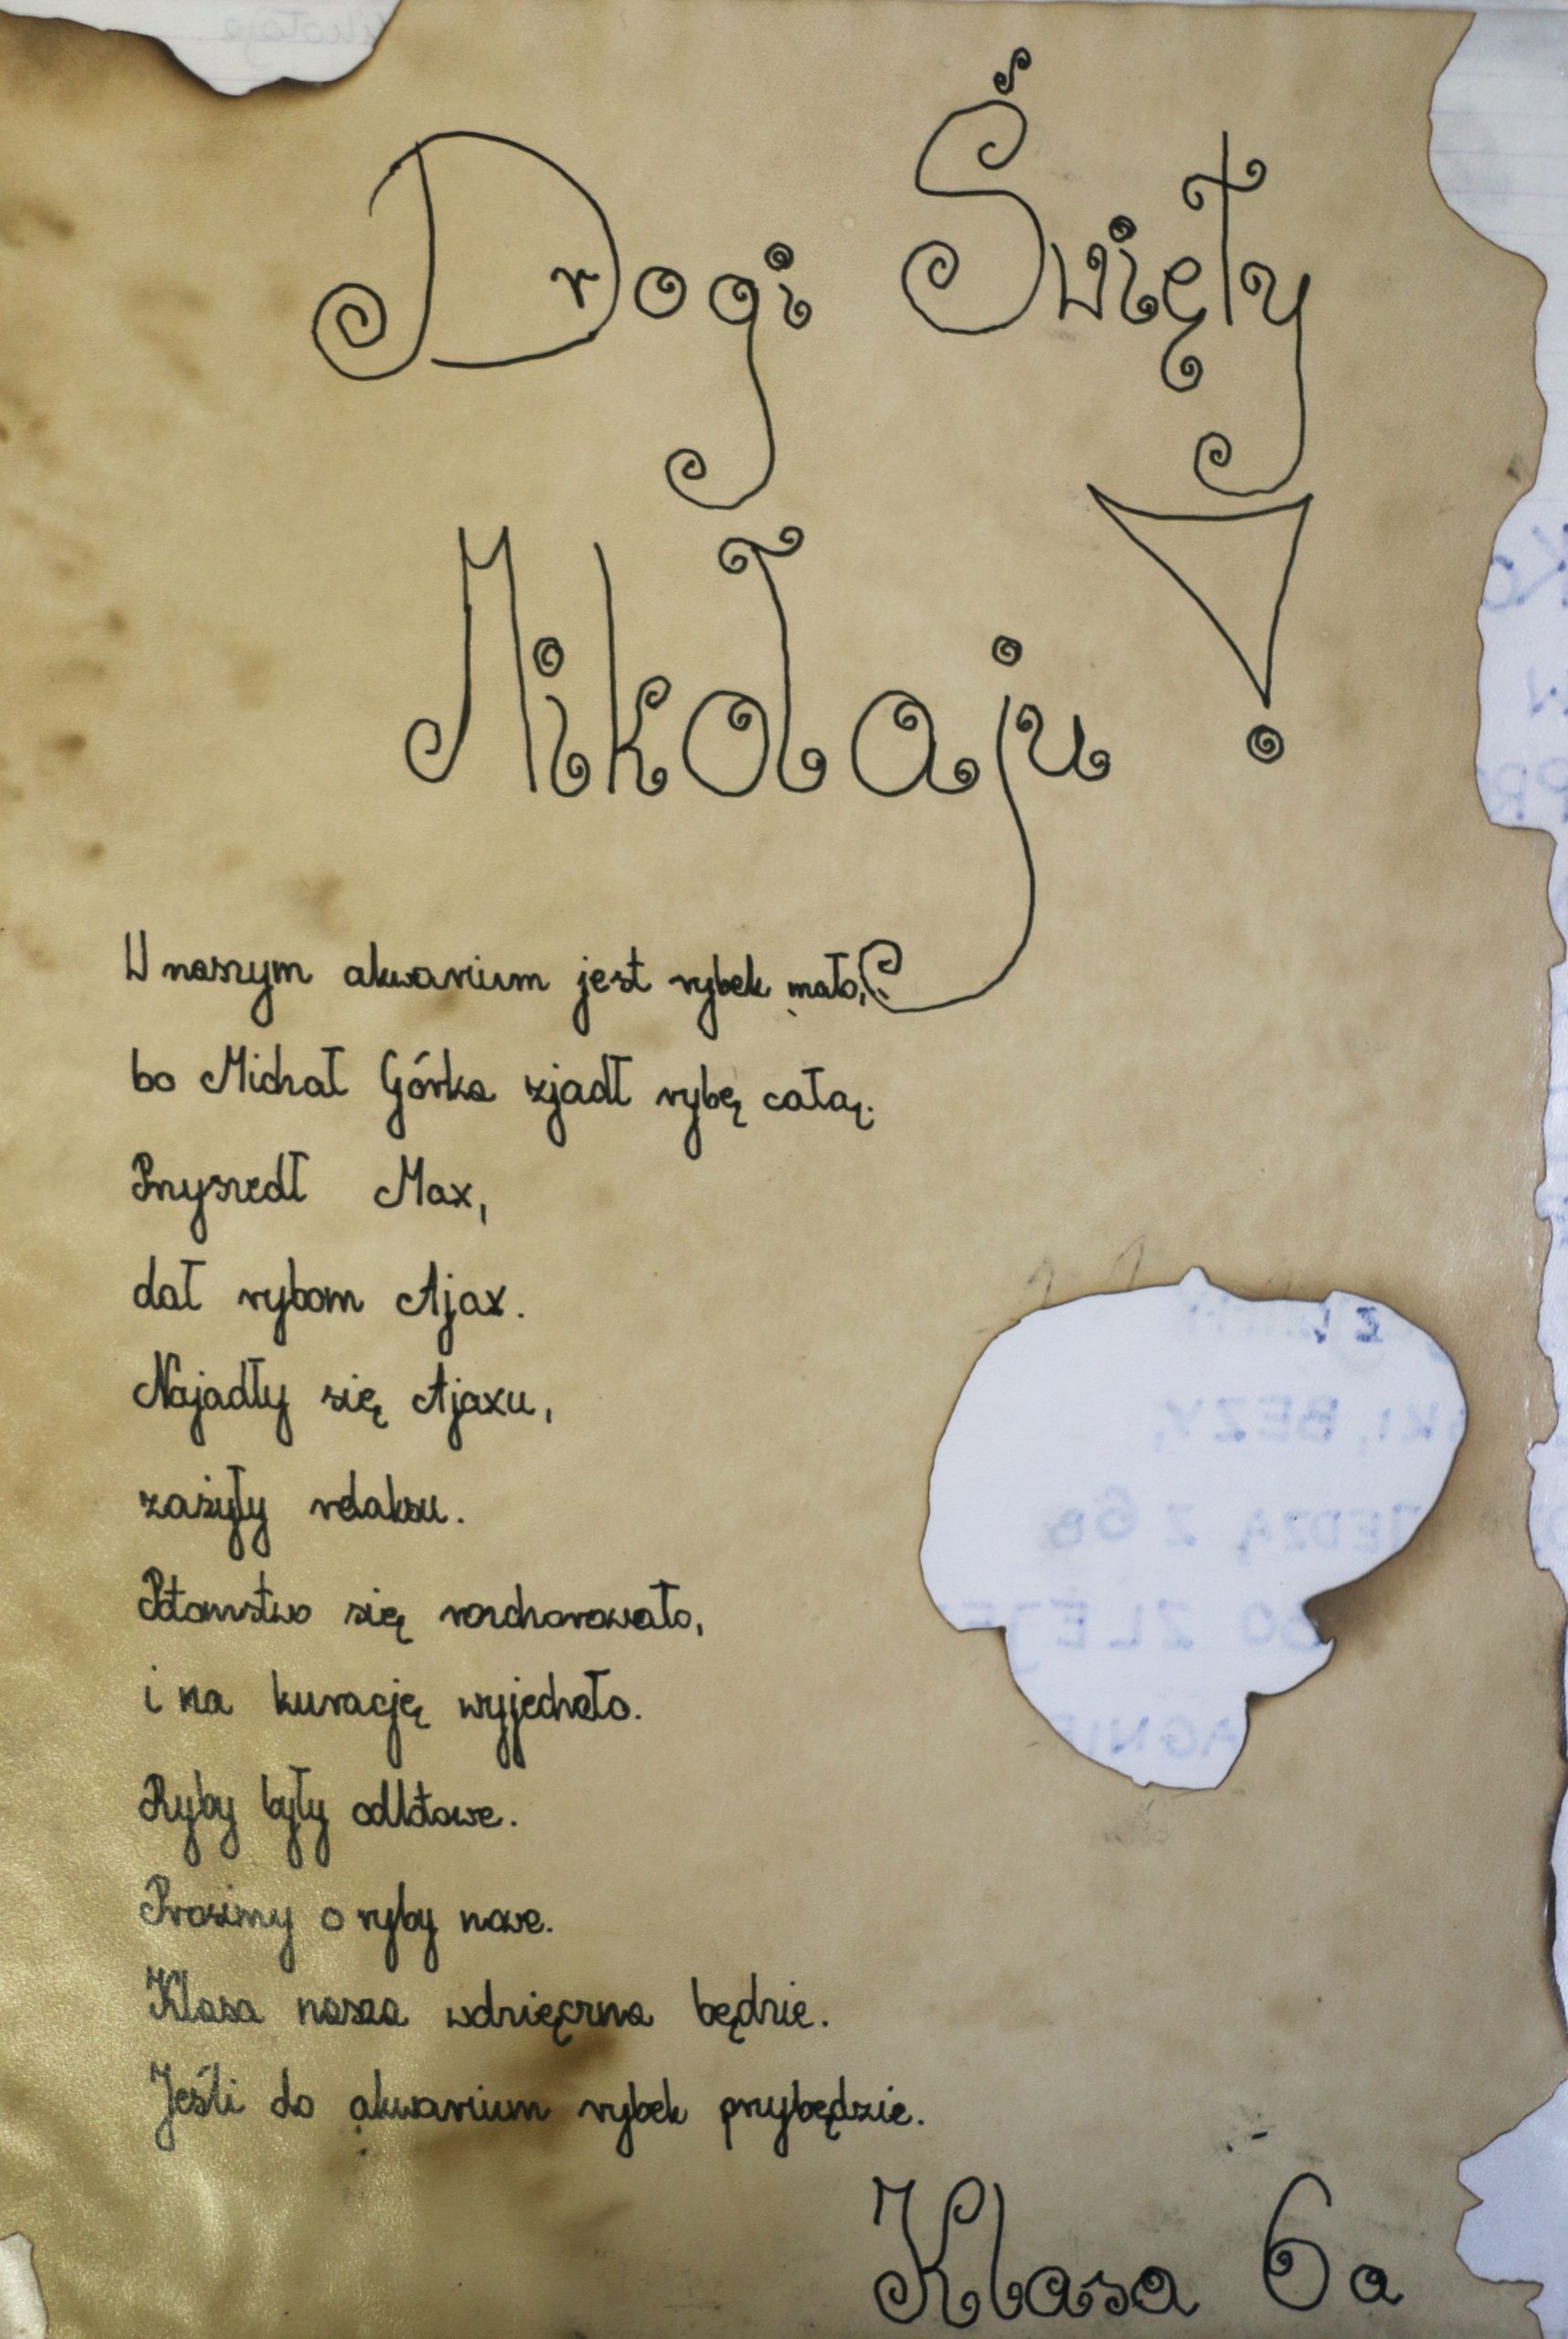 Drogi Święty
Mikołaju!
W naszym akwarium jest rybek mało,
bo Michał Górka zjadł rybę całą.
Przyszedł Max,
dał rybom Ajax.
Najadły się Ajaxu,
zażyły relaksu.
Potomstwo się rozchorowało,
i na kurację wyjechało.
Ryby były odlotowe.
Prosimy o ryby nowe.
Klasa nasza wdzięczna będzie.
Jeśli do akwarium rybek przybędzie.
BEZY,
Z 6a
ZLEJE
Klasa 6a